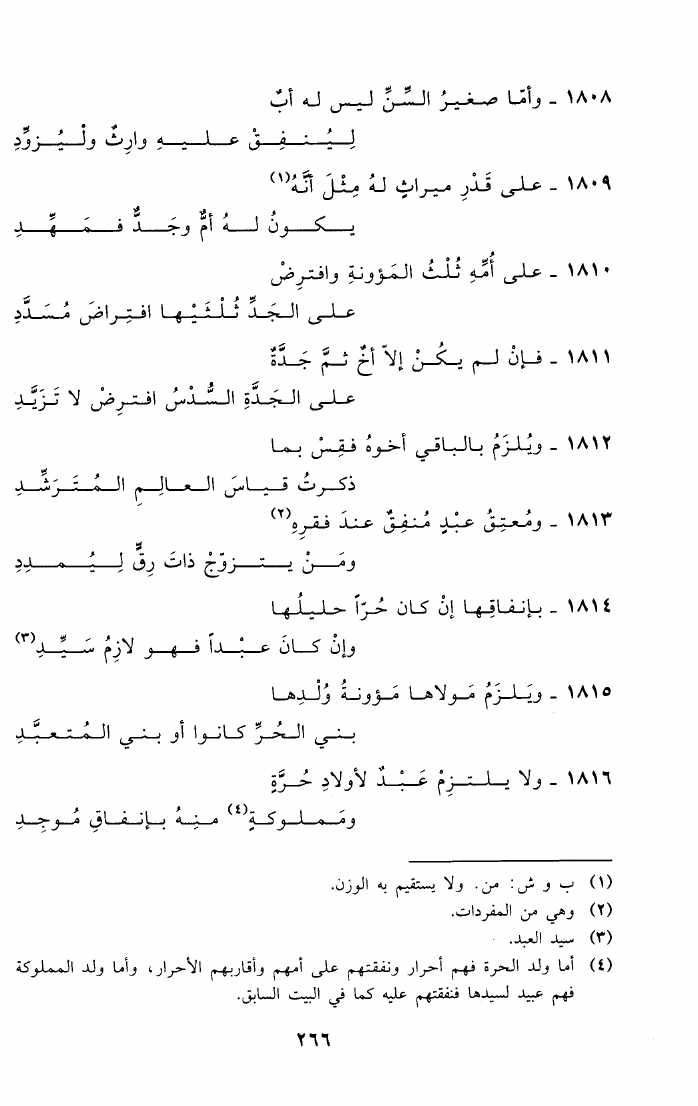 ١٨٠٨ - وأمّا صغيرُ السِّنِّ ليس له أبٌ
لِيُنفِقْ عليهِ وارِثٌ ولْيُزوِّدِ
١٨٠٩ - على قَدْرِ ميراثٍ لهُ مِثْلَ أنَّهُ(١)
يكونُ لهُ أمٌّ وجَدٌّ فمَهِّدِ
١٨١٠ - على أُمِّهِ ثُلْثُ المَؤونةِ وافترِضْ
على الجَدِّ ثُلْثَيْها افتِراضَ مُسَدَّدِ
١٨١١ - فإنْ لم يكُنْ إلاّ أخٌ ثمَّ جَدَّةٌ
على الجَدَّةِ السُّدْسُ افترِضْ لا تَزَيَّدِ
١٨١٢ - ويُلزَمُ بالباقي أخوهُ فقِسْ بما
ذكرتُ قياسَ العالِمِ المُتَرَشِّدِ
١٨١٣ - ومُعتِقُ عبْدٍ مُنفِقٌ عندَ فقرِهِ(٢)
ومَنْ يتزوّجْ ذاتَ رِقٍّ لِيُمدِدِ
١٨١٤ - بإنفاقِها إنْ كان حُرّاً حليلُها
وإنْ كانَ عبْداً فهو لازِمُ سَيِّدِ(٣)
١٨١٥ - ويَلزَمُ مَولاها مَؤونةُ وُلْدِها
بني الحُرِّ كانوا أو بني المُتعبَّدِ
١٨١٦ - ولا يلتزِمْ عَبْدٌ لأولادِ حُرَّةٍ
ومَملوكةٍ(٤) منِهُ بإنفاقِ مُوجِدِ
(١) ب و ش: من. ولا يستقيم به الوزن.
(٢) وهي من المفردات.
(٣) سيد العبد.
(٤) أما ولد الحرة فهم أحرار ونفقتهم على أمهم وأقاربهم الأحرار، وأما ولد المملوكة
فهم عبيد لسيدها فنفقتهم عليه كما في البيت السابق.
٢٦٦